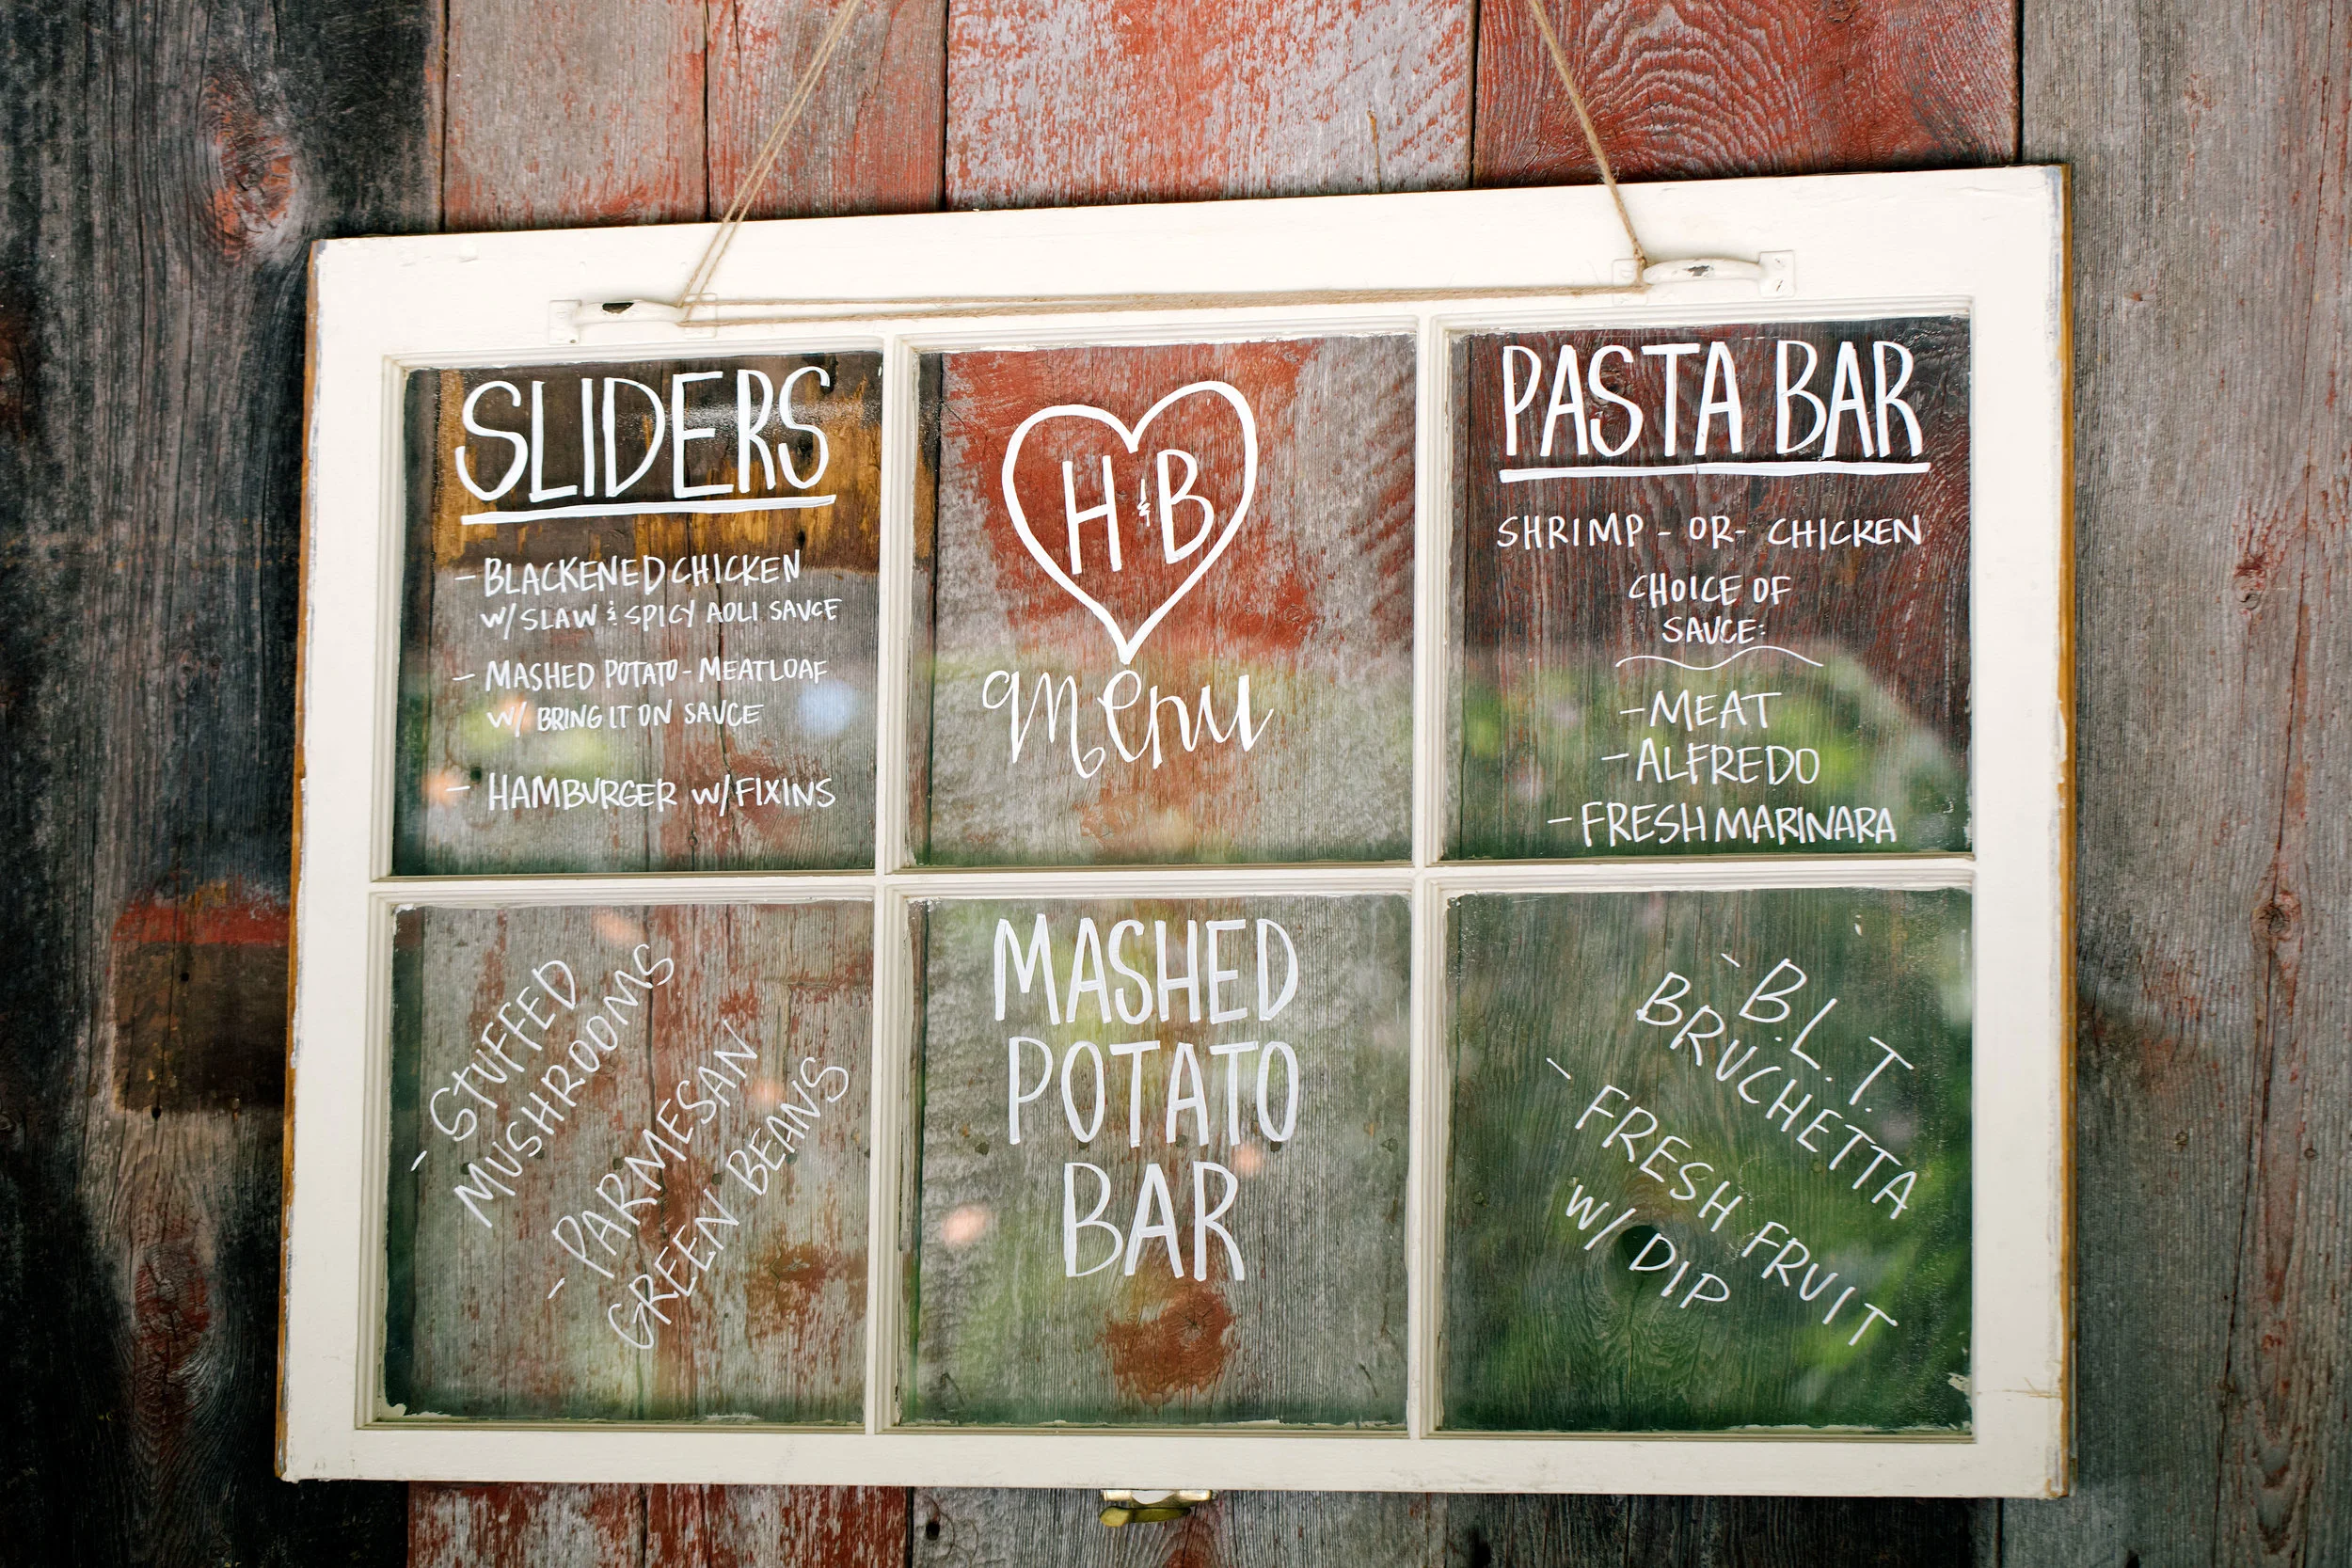 SLIDERS
- BLACKENED CHICKEN
W/ SLAW & SPICY AOLI SAUCE
- MASHED POTATO - MEATLOAF
W/ BRING IT ON SAUCE
- HAMBURGER W/ FIXINS
H & B
menu
PASTA BAR
SHRIMP - OR - CHICKEN
CHOICE OF
SAUCE:
- MEAT
- ALFREDO
- FRESH MARINARA
- STUFFED
MUSHROOMS
- PARMESAN
GREEN BEANS
MASHED
POTATO
BAR
- B.L.T.
BRUCHETTA
- FRESH FRUIT
W/ DIP